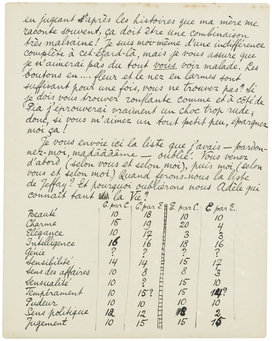 en jugeant d'après les histoires que ma mère me
raconte souvent, ça doit être une combinaison
très malsaine! Je suis moi-même d'une indifférence
complète à cet égard-là, mais je vous assure que
je n'aimerais pas du tout vous voir malade. Les
boutons en ... fleur et le nez en larmes sont
suffisant pour une fois, vous ne trouvez pas? Si
je dois vous trouver ronflante comme et à côté de
P.a j'éprouverai vraiment un choc trop rude;
donc, si vous m'aimez un tout petit peu, épargnez
moi ça!
Je vous envoie ici la liste que j'avais – pardon-
nez-moi, madāāāāme – oublié. Vous venez
d'abord (selon vous et selon moi), puis moi (selon
vous et selon moi) Quand ferons-nous la liste
de Jeffay? Et pourquoi oublierons nous Adèle qui
connaît tant la Vie?
E. par C. C. par C. E. par E.
Beauté 10 18 10 10
Charme 15 19 20 4
Élégance 10 17 3 3
Intelligence 16 16 18 16
Génie ? ? ? ?
Sensibilité 14 14 15 17
Sens des affaires 10 8 8 3
Sensualité 10 ? 15 10
Tempérament 10 15? 15 14?
Pudeur 10 10 10 10
Sens politique 12 2
Jugement 10 15 15 15